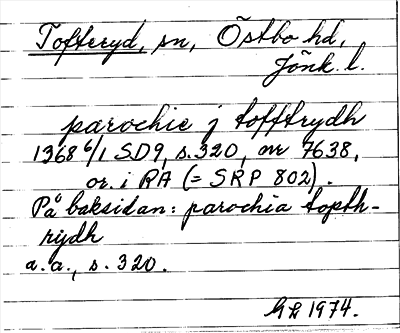 Tofteryd, sn, Östbo hd,
Jönk. l.
parochie j tofftrydh
1368 6/1 SD9, s. 320, nr 7638,
or. i RA (= SRP 802).
På baksidan: parochia topth-
rijdh
a. a., s. 320.
GL 1974.